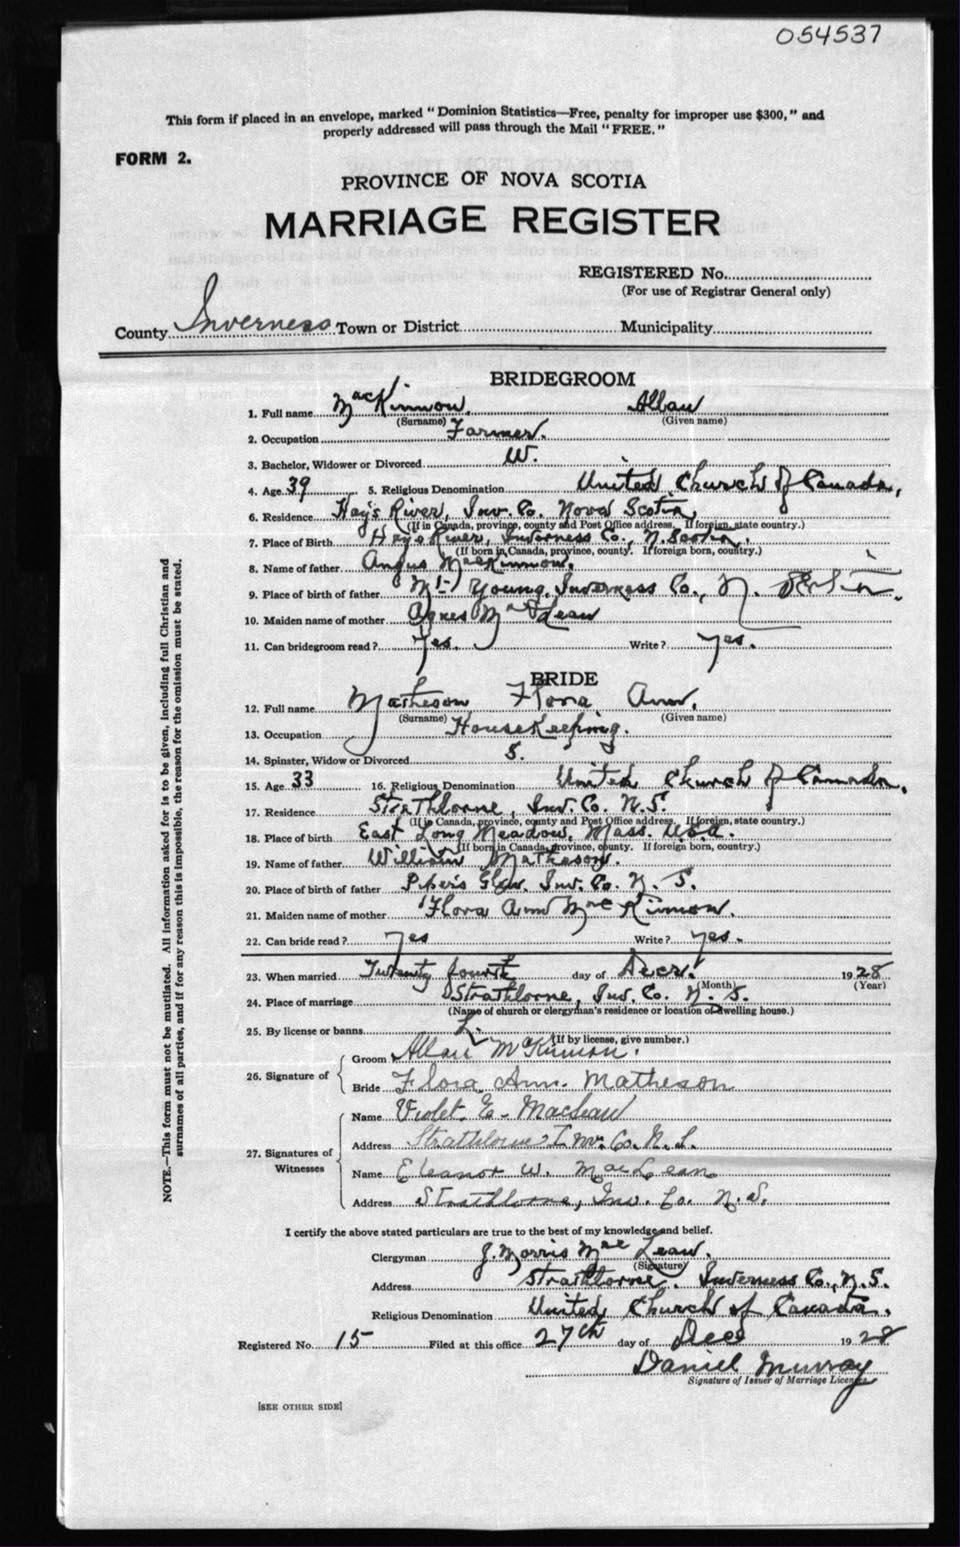 054537
This form if placed in an envelope, marked "Dominion Statistics—Free, penalty for improper use $300," and
properly addressed will pass through the Mail "FREE."
FORM 2.
PROVINCE OF NOVA SCOTIA
MARRIAGE REGISTER
REGISTERED No.
(For use of Registrar General only)
County Inverness Town or District Municipality
BRIDEGROOM
1. Full name MacKinnon, Allan
(Surname) (Given name)
2. Occupation Farmer.
3. Bachelor, Widower or Divorced W.
4. Age 39 5. Religious Denomination United Church of Canada,
6. Residence Hay's River, Inv. Co. Nova Scotia
(If in Canada, province, county and Post Office address. If foreign, state country.)
7. Place of Birth Hays River, Inverness Co., N. Scotia.
(If born in Canada, province, county. If foreign born, country.)
8. Name of father Angus MacKinnon.
9. Place of birth of father Mt. Young, Inverness Co., N. Scotia.
10. Maiden name of mother Agnes MacLean
11. Can bridegroom read? Yes. Write? Yes.
BRIDE
12. Full name Matheson Flora Ann.
(Surname) (Given name)
13. Occupation HouseKeeping.
14. Spinster, Widow or Divorced S.
15. Age 33 16. Religious Denomination United Church of Canada.
17. Residence Strathlorne, Inv. Co. N.S.
(If in Canada, province, county and Post Office address. If foreign, state country.)
18. Place of birth East Long Meadow, Mass. U.S.A.
(If born in Canada, province, county. If foreign born, country.)
19. Name of father William Matheson.
20. Place of birth of father Piper's Glen, Inv. Co. N. S.
21. Maiden name of mother Flora Ann MacKinnon.
22. Can bride read? Yes Write? Yes.
23. When married Twenty fourth day of Decr. 1928
(Month) (Year)
24. Place of marriage Strathlorne, Inv. Co. N. S.
(Name of church or clergyman's residence or location of dwelling house.)
25. By license or banns L.
(If by license, give number.)
26. Signature of
Groom Allan McKinnon.
Bride Flora Ann. Matheson
27. Signatures of Witnesses
Name Violet E. MacLean
Address Strathlorne Inv. Co. N. S.
Name Eleanor W. MacLean
Address Strathlorne, Inv. Co. N. S.
I certify the above stated particulars are true to the best of my knowledge and belief.
Clergyman J. Morris MacLean.
(Signature)
Address Strathlorne, Inverness Co., N.S.
Religious Denomination United Church of Canada.
Registered No. 15 Filed at this office 27th day of Dec 1928
Daniel Murray
Signature of Issuer of Marriage License
[SEE OTHER SIDE]
NOTE.—This form must not be mutilated. All information asked for is to be given, including full Christian and
surnames of all parties, and if for any reason this is impossible, the reason for the omission must be stated.